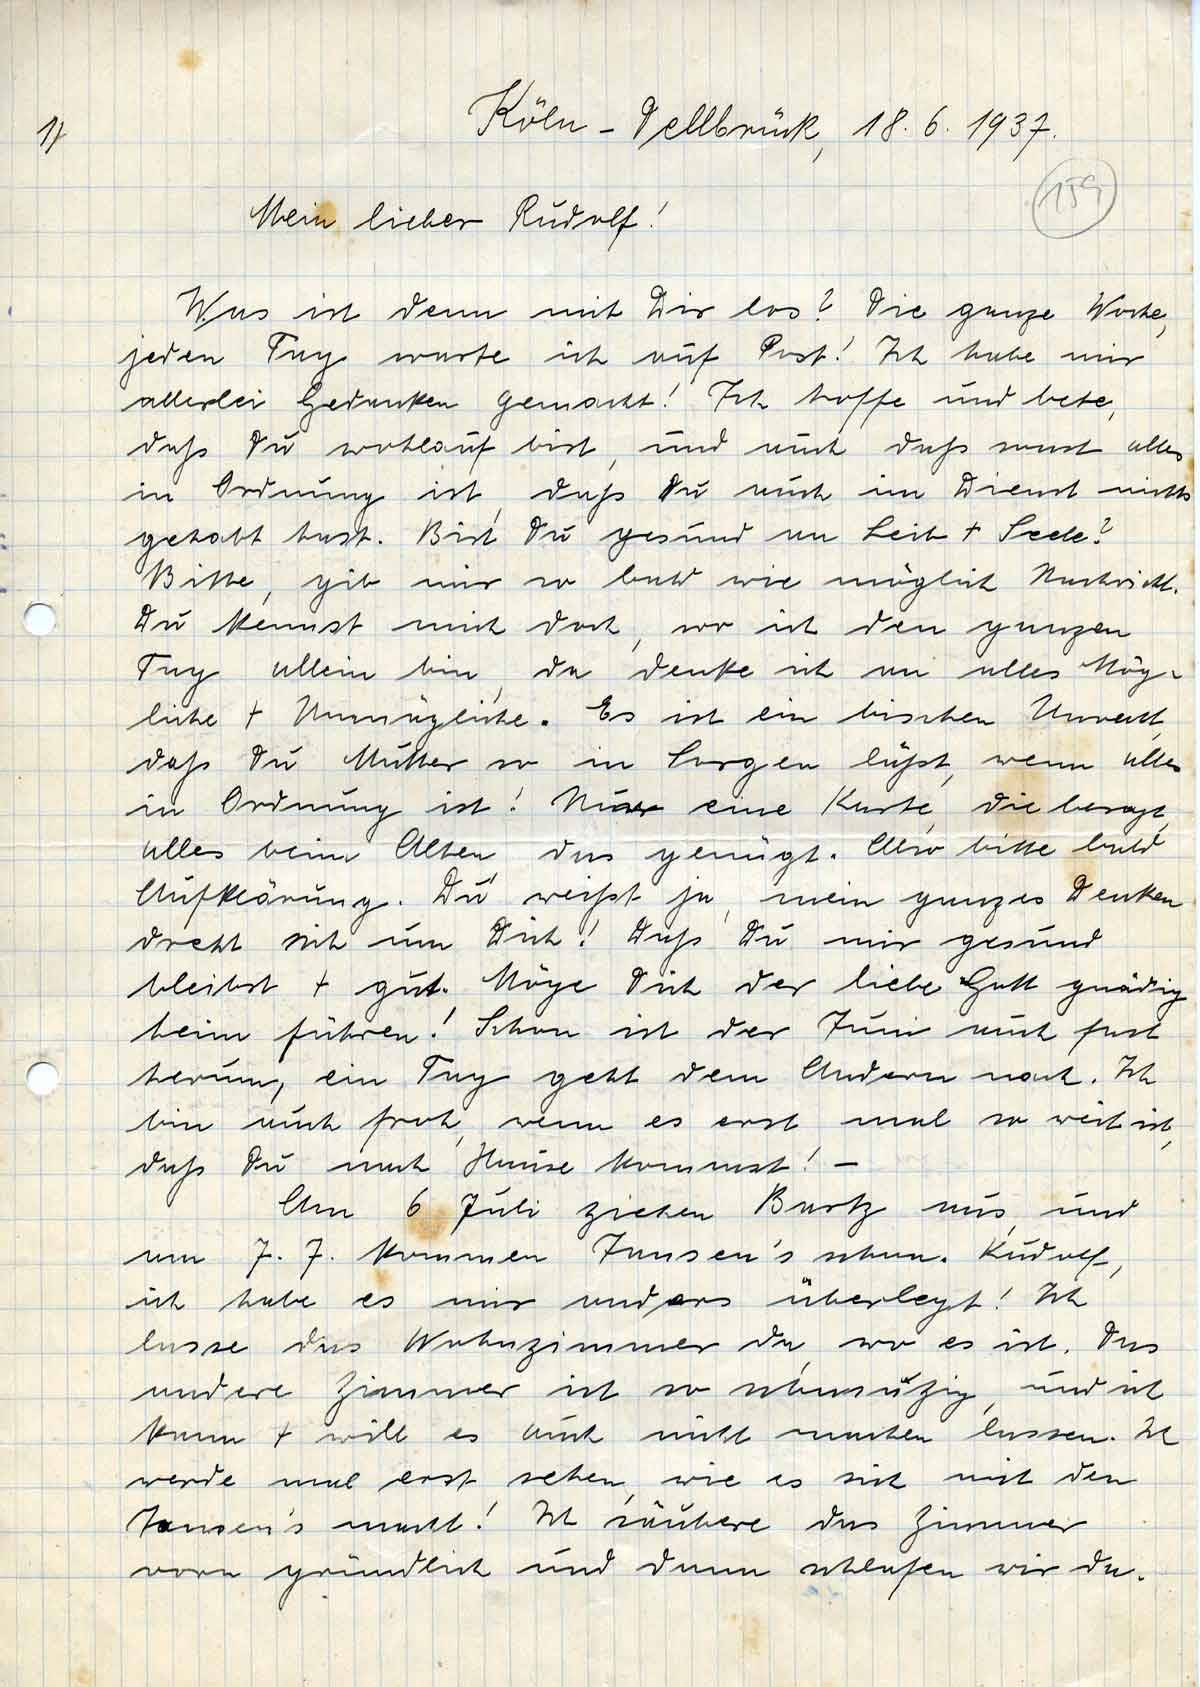 1)
Köln - Dellbrück, 18. 6. 1937.
159
Mein lieber Rudolf!
Was ist denn mit Dir los? Die ganze Woche,
jeden Tag warte ich auf Post! Ich habe mir
allerlei Gedanken gemacht! Ich hoffe und bete,
daß Du wohlauf bist, und auch daß sonst alles
in Ordnung ist, daß Du auch im Dienst nichts
gehabt hast. Bist Du gesund an Leib + Seele?
Bitte, gib mir so bald wie möglich Nachricht.
Du kennst mich doch, wo ich den ganzen
Tag allein bin, da denke ich an alles Mög-
liche + Unmögliche. Es ist ein bischen Unrecht,
daß Du Mutter so in Sorgen läßt, wenn alles
in Ordnung ist! Nur eine Karte, die besagt,
alles beim Alten das genügt. Also bitte bald
Aufklärung. Du weißt ja, mein ganzes Denken
dreht sich um Dich! Daß Du mir gesund
bleibst + gut. Möge Dich der liebe Gott gnädig
heim führen! Schon ist der Juni auch fast
herum, ein Tag geht dem Andern nach. Ich
bin auch froh, wenn es erst mal so weit ist,
daß Du nach Hause kommst! —
Am 6 Juli ziehen Bartz aus, und
am 7. 7. kommen Jansen's schon. Rudolf,
ich habe es mir anders überlegt! Ich
lasse das Wohnzimmer da, wo es ist. Das
andere Zimmer ist so schmutzig, und ich
kann + will es auch nicht machen lassen. Ich
werde mal erst sehen, wie es sich mit den
Jansen's macht! Ich säubere das Zimmer
vorn gründlich und dann schlafen wir da.